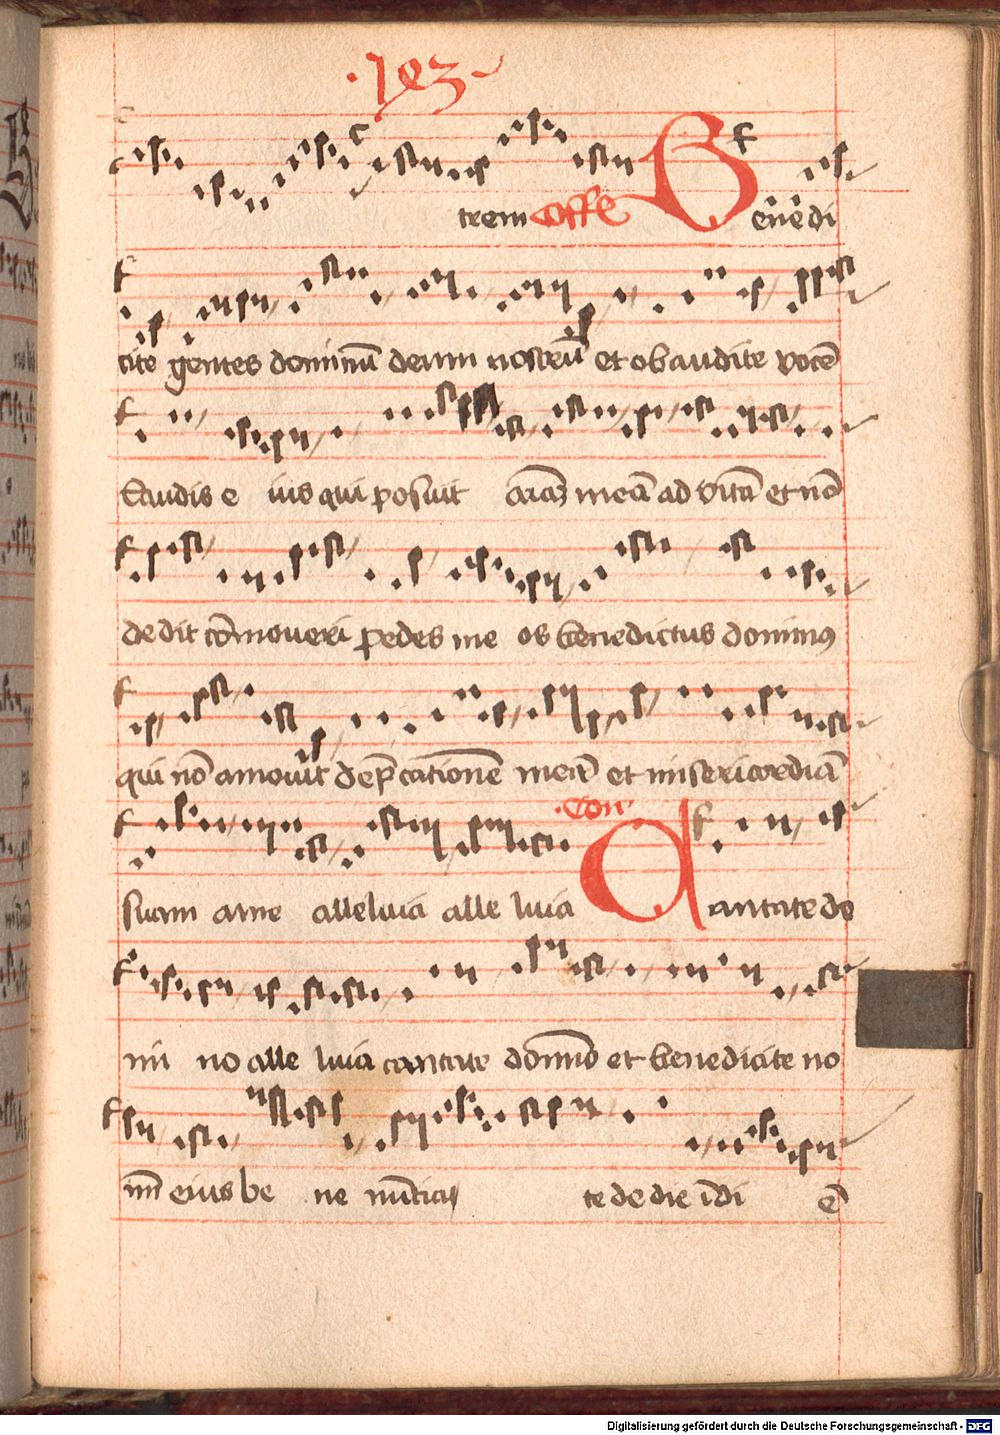 ·193·
trem Offe Benedi
cite gentes dominū deum nostrū et obaudite vocē
laudis e ius qui posuit aīaȝ meā ad vitā et nō
dedit cōmoveri pedes me os benedictus dominus
qui nō amovit dep̄cationē meā et misericordiā
suam a me alleluia alle luia Con Cantate do
mi no alle luia cantate domino et benedicite no
mē eius be ne nūtia te de die ī di ē
Digitalisierung gefördert durch die Deutsche Forschungsgemeinschaft - DFG